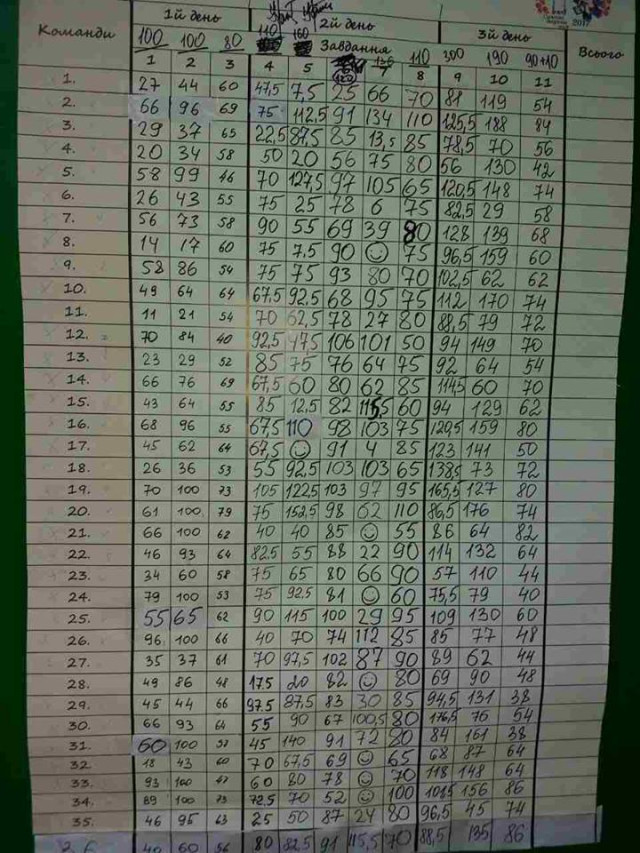 Команди 1й день 2й день 3й день Всього
2017
Завдання
100 100 80 110 160 110 300 190 90+10
1 2 3 4 5 7 8 9 10 11
1. 27 44 60 47,5 7,5 25 66 70 81 119 54
2. 66 96 69 75 112,5 91 134 110 125,5 188 84
3. 29 37 65 22,5 87,5 85 13,5 85 78,5 70 56
4. 20 34 58 50 20 56 75 80 56 130 42
5. 58 99 46 70 127,5 97 105 65 120,5 148 74
6. 26 43 55 75 25 78 6 75 82,5 29 58
7. 56 73 58 90 55 69 39 80 128 139 68
8. 14 17 60 75 7,5 90 75 96,5 159 60
9. 58 86 54 75 75 93 80 70 102,5 62 62
10. 49 64 64 67,5 92,5 68 95 75 112 170 74
11. 11 21 54 70 62,5 78 27 80 88,5 79 72
12. 70 84 40 92,5 47,5 106 101 50 94 149 70
13. 23 29 52 85 75 76 64 75 92 64 54
14. 66 76 69 67,5 60 80 62 85 114,5 60 70
15. 43 64 55 85 12,5 82 115,5 60 94 129 62
16. 68 96 55 67,5 110 98 103 75 120,5 159 80
17. 45 62 64 67,5 91 4 85 123 141 50
18. 26 36 53 55 92,5 103 103 65 138,5 73 72
19. 70 100 73 105 122,5 103 97 95 165,5 127 80
20. 61 100 79 75 152,5 98 62 110 86,5 176 74
21. 66 100 62 40 40 85 55 86 64 82
22. 46 93 64 82,5 55 88 22 90 114 132 64
23. 34 60 58 75 65 80 66 90 57 110 44
24. 79 100 53 75 92,5 81 60 75,5 79 40
25. 55 65 62 90 115 100 29 95 109 130 60
26. 96 100 66 40 70 74 112 85 85 77 48
27. 35 37 61 70 97,5 102 87 90 89 62 44
28. 49 86 48 17,5 20 82 80 69 90 48
29. 45 44 66 97,5 87,5 83 30 85 94,5 131 38
30. 66 93 64 55 90 67 100,5 80 176,5 76 54
31. 60 100 45 140 91 72 80 84 161 38
32. 18 43 60 70 67,5 69 65 68 87 64
33. 93 100 60 80 78 70 118 148 64
34. 89 100 73 72,5 70 52 100 101,5 156 86
35. 46 95 63 25 50 87 24 80 96,5 45 74
60 56 80 82,5 91 115,5 70 88,5 135 86